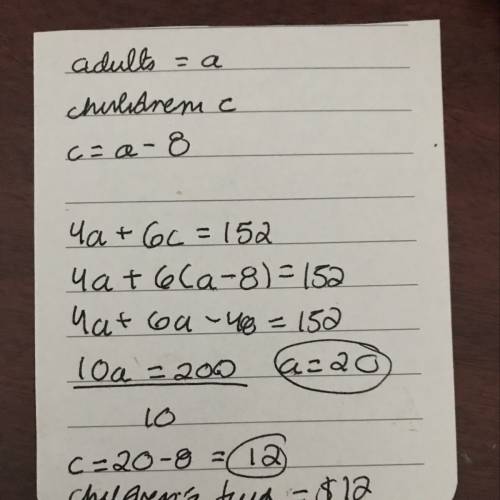 adults = a
children c
c = a - 8
4a + 6c = 152
4a + 6(a-8) = 152
4a + 6a - 48 = 152
10a = 200 a = 20
10
c = 20 - 8 = 12
= $12